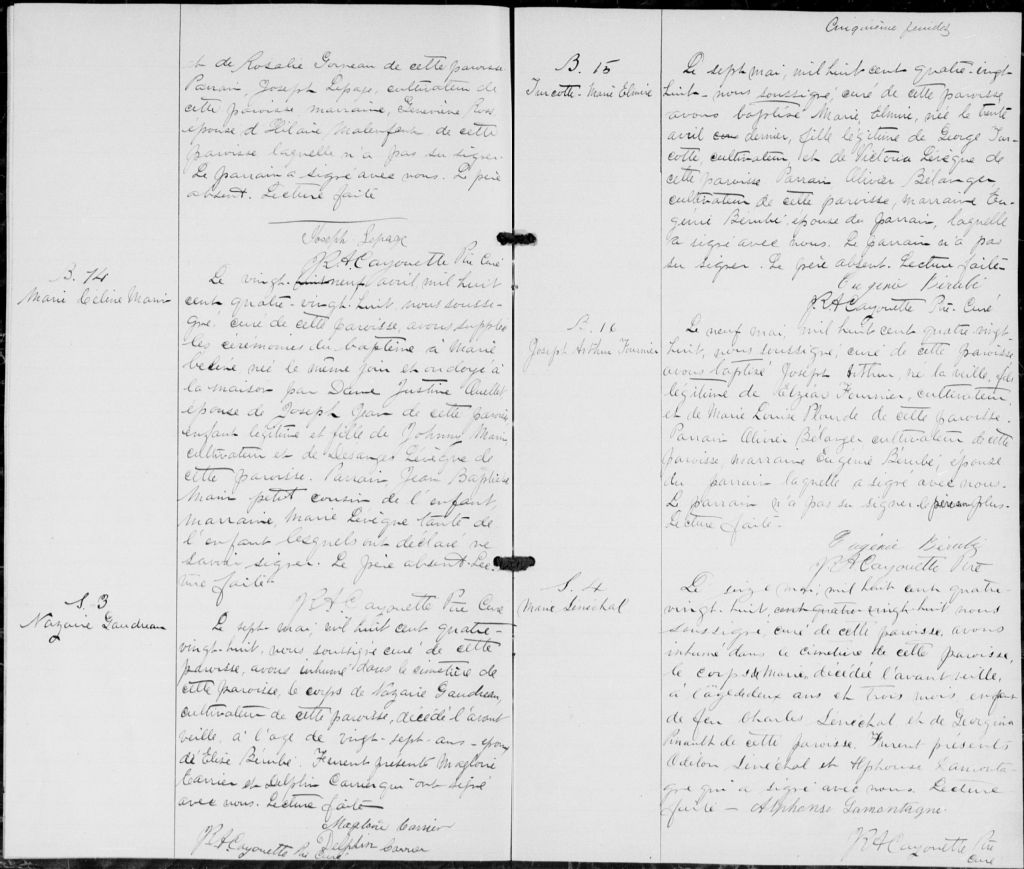 et de Rosalie Gorneau de cette paroisse
Parrain, Joseph Lepage, cultivateur de
cette paroisse marraine, Geneviève Ross
épouse d'Hilaire Malenfant de cette
paroisse laquelle n'a pas su signer.
Le parrain a signé avec nous. Le père
absent. Lecture faite
Joseph Lepage
J R A Cayouette Ptre Curé
B. 14
Marie Céline Marin
Le vingt-neuf avril mil huit
cent quatre-vingt-huit, nous soussi-
gné, curé de cette paroisse, avons suppléé
les cérémonies du baptême à Marie
Céline, née le même jour et ondoyée à
la maison par Dame Justine Ouellet
épouse de Joseph Jean de cette paroisse
enfant légitime et fille de Johnny Marin,
cultivateur et de Desanges Lévèque de
cette paroisse. Parrain Jean Baptiste
Marin petit cousin de l'enfant,
marraine, Marie Lévèque tante de
l'enfant lesquels ont déclaré ne
savoir signer. Le père absent. Lec-
ture faite.
J R A Cayouette Ptre Curé
S. 3
Nazarie Gaudreau
Le sept mai, mil huit cent quatre-
vingt-huit, nous soussigné curé de cette
paroisse, avons inhumé dans le cimetière de
cette paroisse, le corps de Nazarie Gaudreau,
cultivateur de cette paroisse, décédé l'avant
veille, à l'age de vingt-sept-ans - époux
de Elise Bérubé. Furent présents Magloire
Carrier et Delphin Carrier qui ont signé
avec nous. Lecture faite
Magloire Carrier
Delphin Carrier
J R A Cayouette Ptre Curé
Cinquième feuillet
B. 15
Turcotte - Marie Elmire
Le sept mai, mil huit cent quatre-vingt-
huit - nous soussigné, curé de cette paroisse
avons baptisé Marie, Elmire, née le trente
avril dernier, fille légitime de George Tur-
cotte, cultivateur, et de Victoria Lévèque de
cette paroisse Parrain Olivier Bélanger
cultivateur de cette paroisse, marraine Eu-
génie Bérubé, épouse du parrain, laquelle
a signé avec nous. Le parrain n'a pas
su signer. Le père absent. Lecture faite
Eugénie Bérubé
J R A Cayouette Ptre. Curé
B. 16
Joseph Arthur Fournier
Le neuf mai, mil huit cent quatre-vingt-
huit, nous soussigné, curé de cette paroisse
avons baptisé Joseph Arthur, né la veille, fils
légitime de Elzéar Fournier, cultivateur
et de Marie Louise Plourde de cette paroisse.
Parrain Olivier Bélanger cultivateur de cette
paroisse, marraine Eugénie Bérubé, épouse
du parrain laquelle a signé avec nous.
Le parrain n'a pas su signer le père non plus.
Lecture faite.
Eugénie Bérubé
J R A Cayouette Ptre
S. 4
Marie Sénéchal
Le seize mai, mil huit cent quatre-
vingt-huit, cent quatre-vingt-huit nous
soussigné, curé de cette paroisse, avons
inhumé dans le cimetière de cette paroisse,
le corps de Marie, décédée l'avant veille,
à l'âge de deux ans et trois mois enfant
de feu Charles Sénéchal et de Georgina
Pinault de cette paroisse. Furent présents
Odelon Sénéchal et Alphonse Lamonta-
gne qui a signé avec nous. Lecture
faite - Alphonse Lamontagne
J R A Cayouette Ptre
Curé